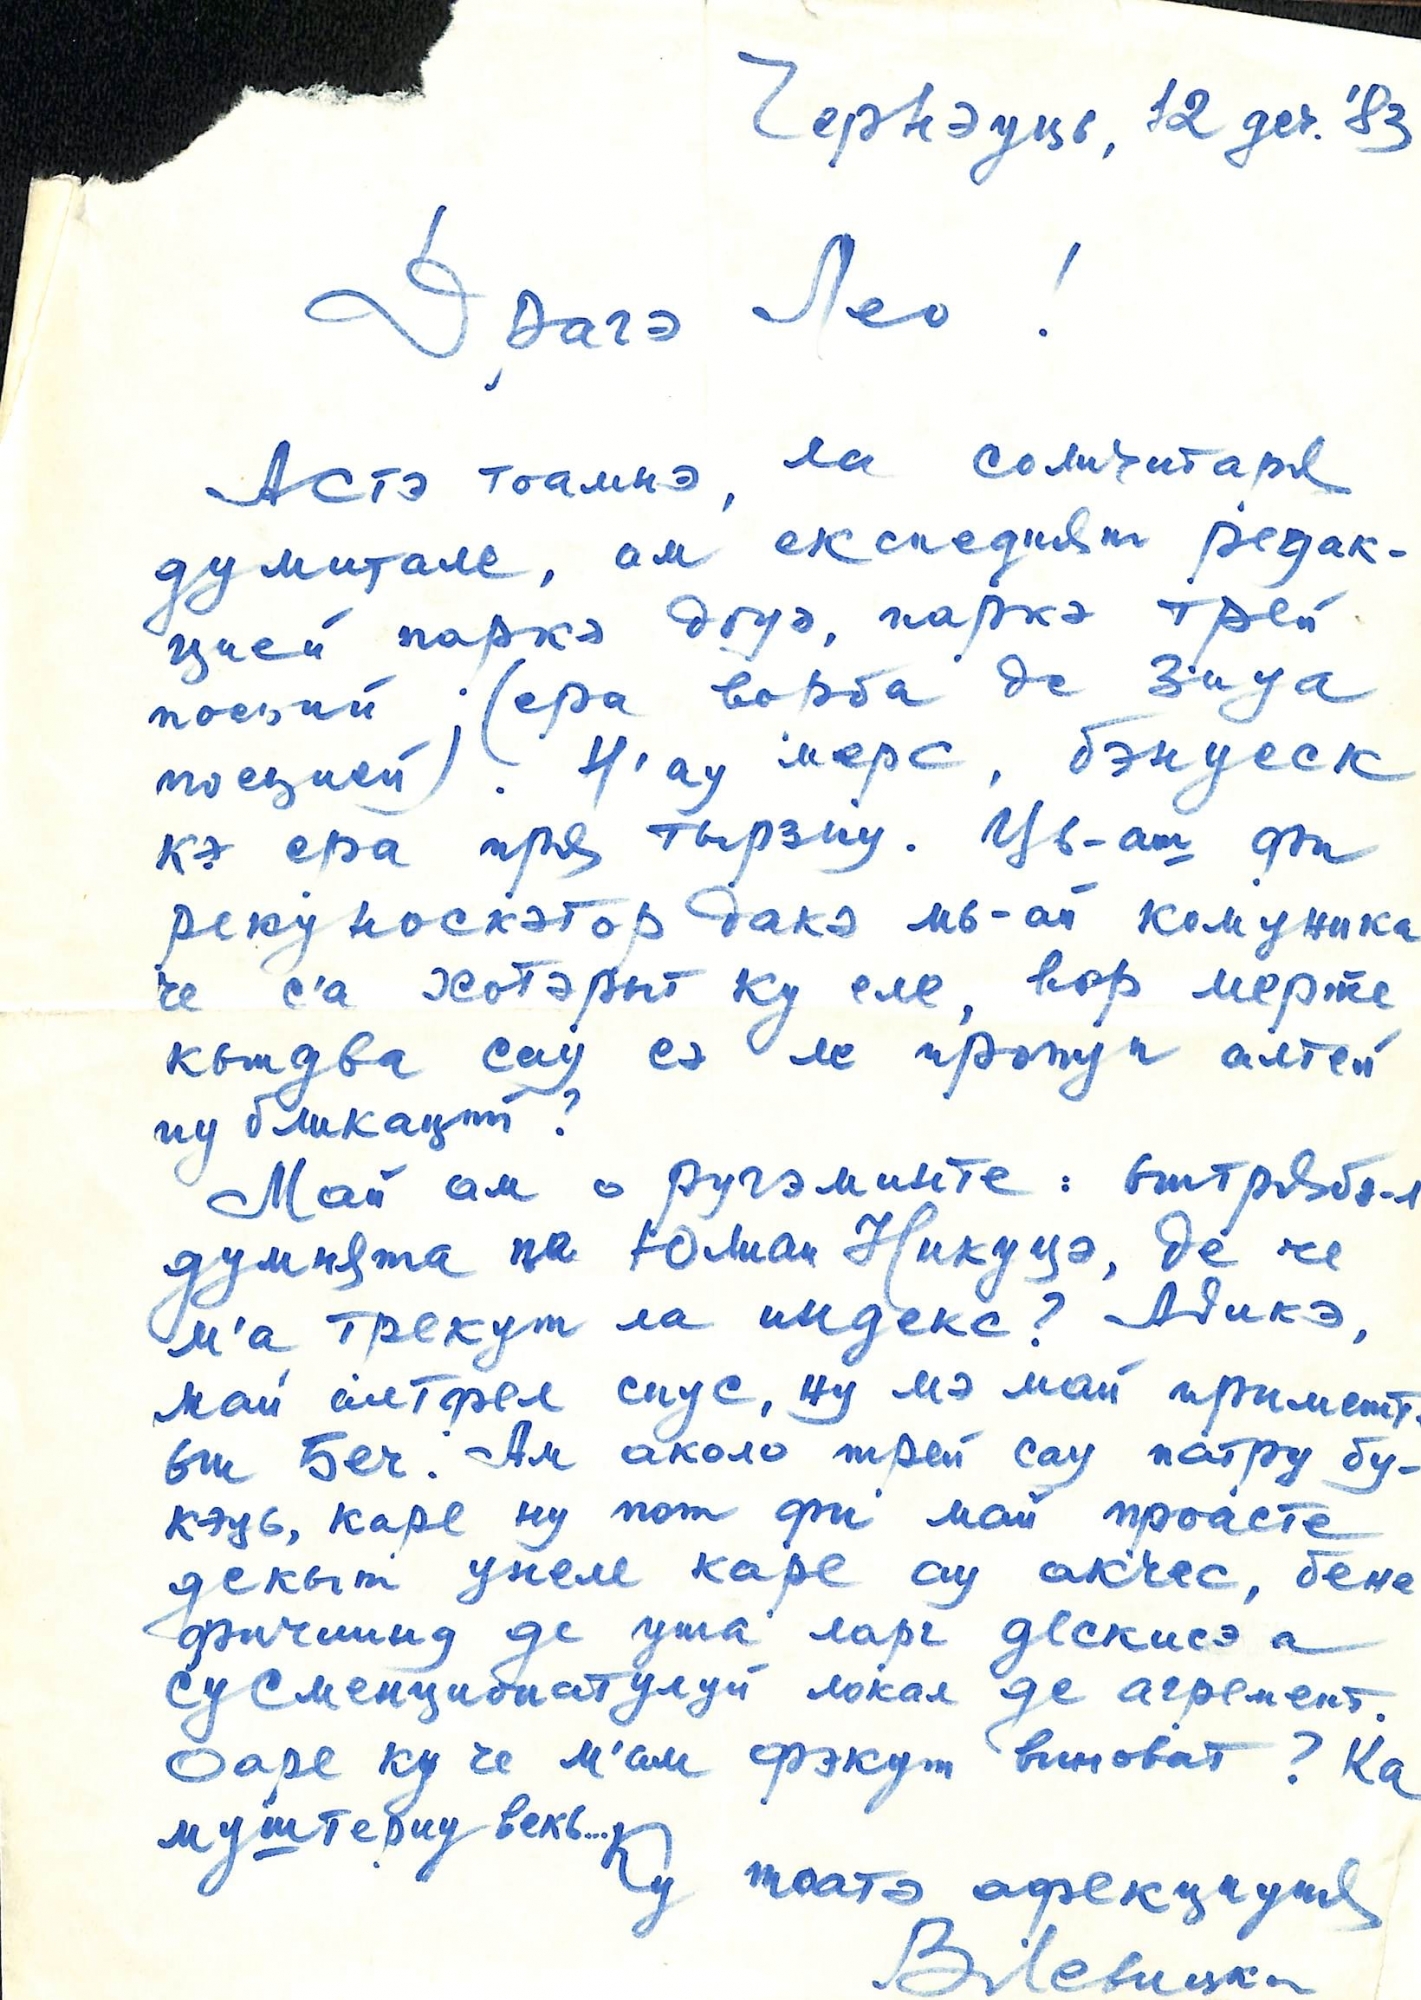 Чернэуць, 12 деч. '83
Драгэ Лео!
Астэ тоамнэ, ла соличитаря
думитале, ам експедият редак-
цией паркэ доуэ, паркэ трей
поезий (ера ворба де Зиуа
поезией). Н'ау мерс, бэнуеск
кэ ера пря тырзиу. Ць-аш фи
рекуноскэтор дакэ мь-ай комуника
че с'а хотэрыт ку еле, вор мерже
кындва сау сэ ле пропун алтей
публикаций?
Май ам о ругэминте: ынтрябэ-л
думнята пе Юлиан Никуцэ, де че
м'а трекут ла индекс? Адикэ,
май алтфел спус, ну мэ май примешт
ын Беч. Ам аколо трей сау патру бу-
кэць, каре ну пот фи май проасте
декыт унеле каре ау акчес, бене
фичиинд де уша ларг дескисэ а
сусменционатулуй локал де агремент.
Оаре ку че м'ам фэкут виноват? Ка
муштериу векь...
Ку тоатэ афекциуня
В. Левицки